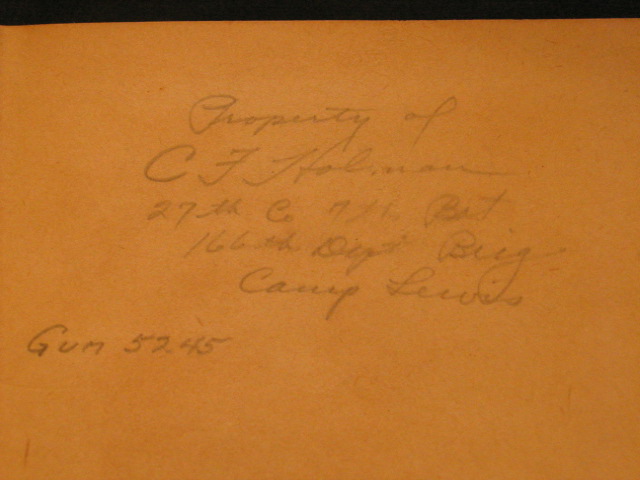 Property of
C F Holman
27th Co 7th Bat
166th Dept Brig
Camp Lewis
Gun 5245